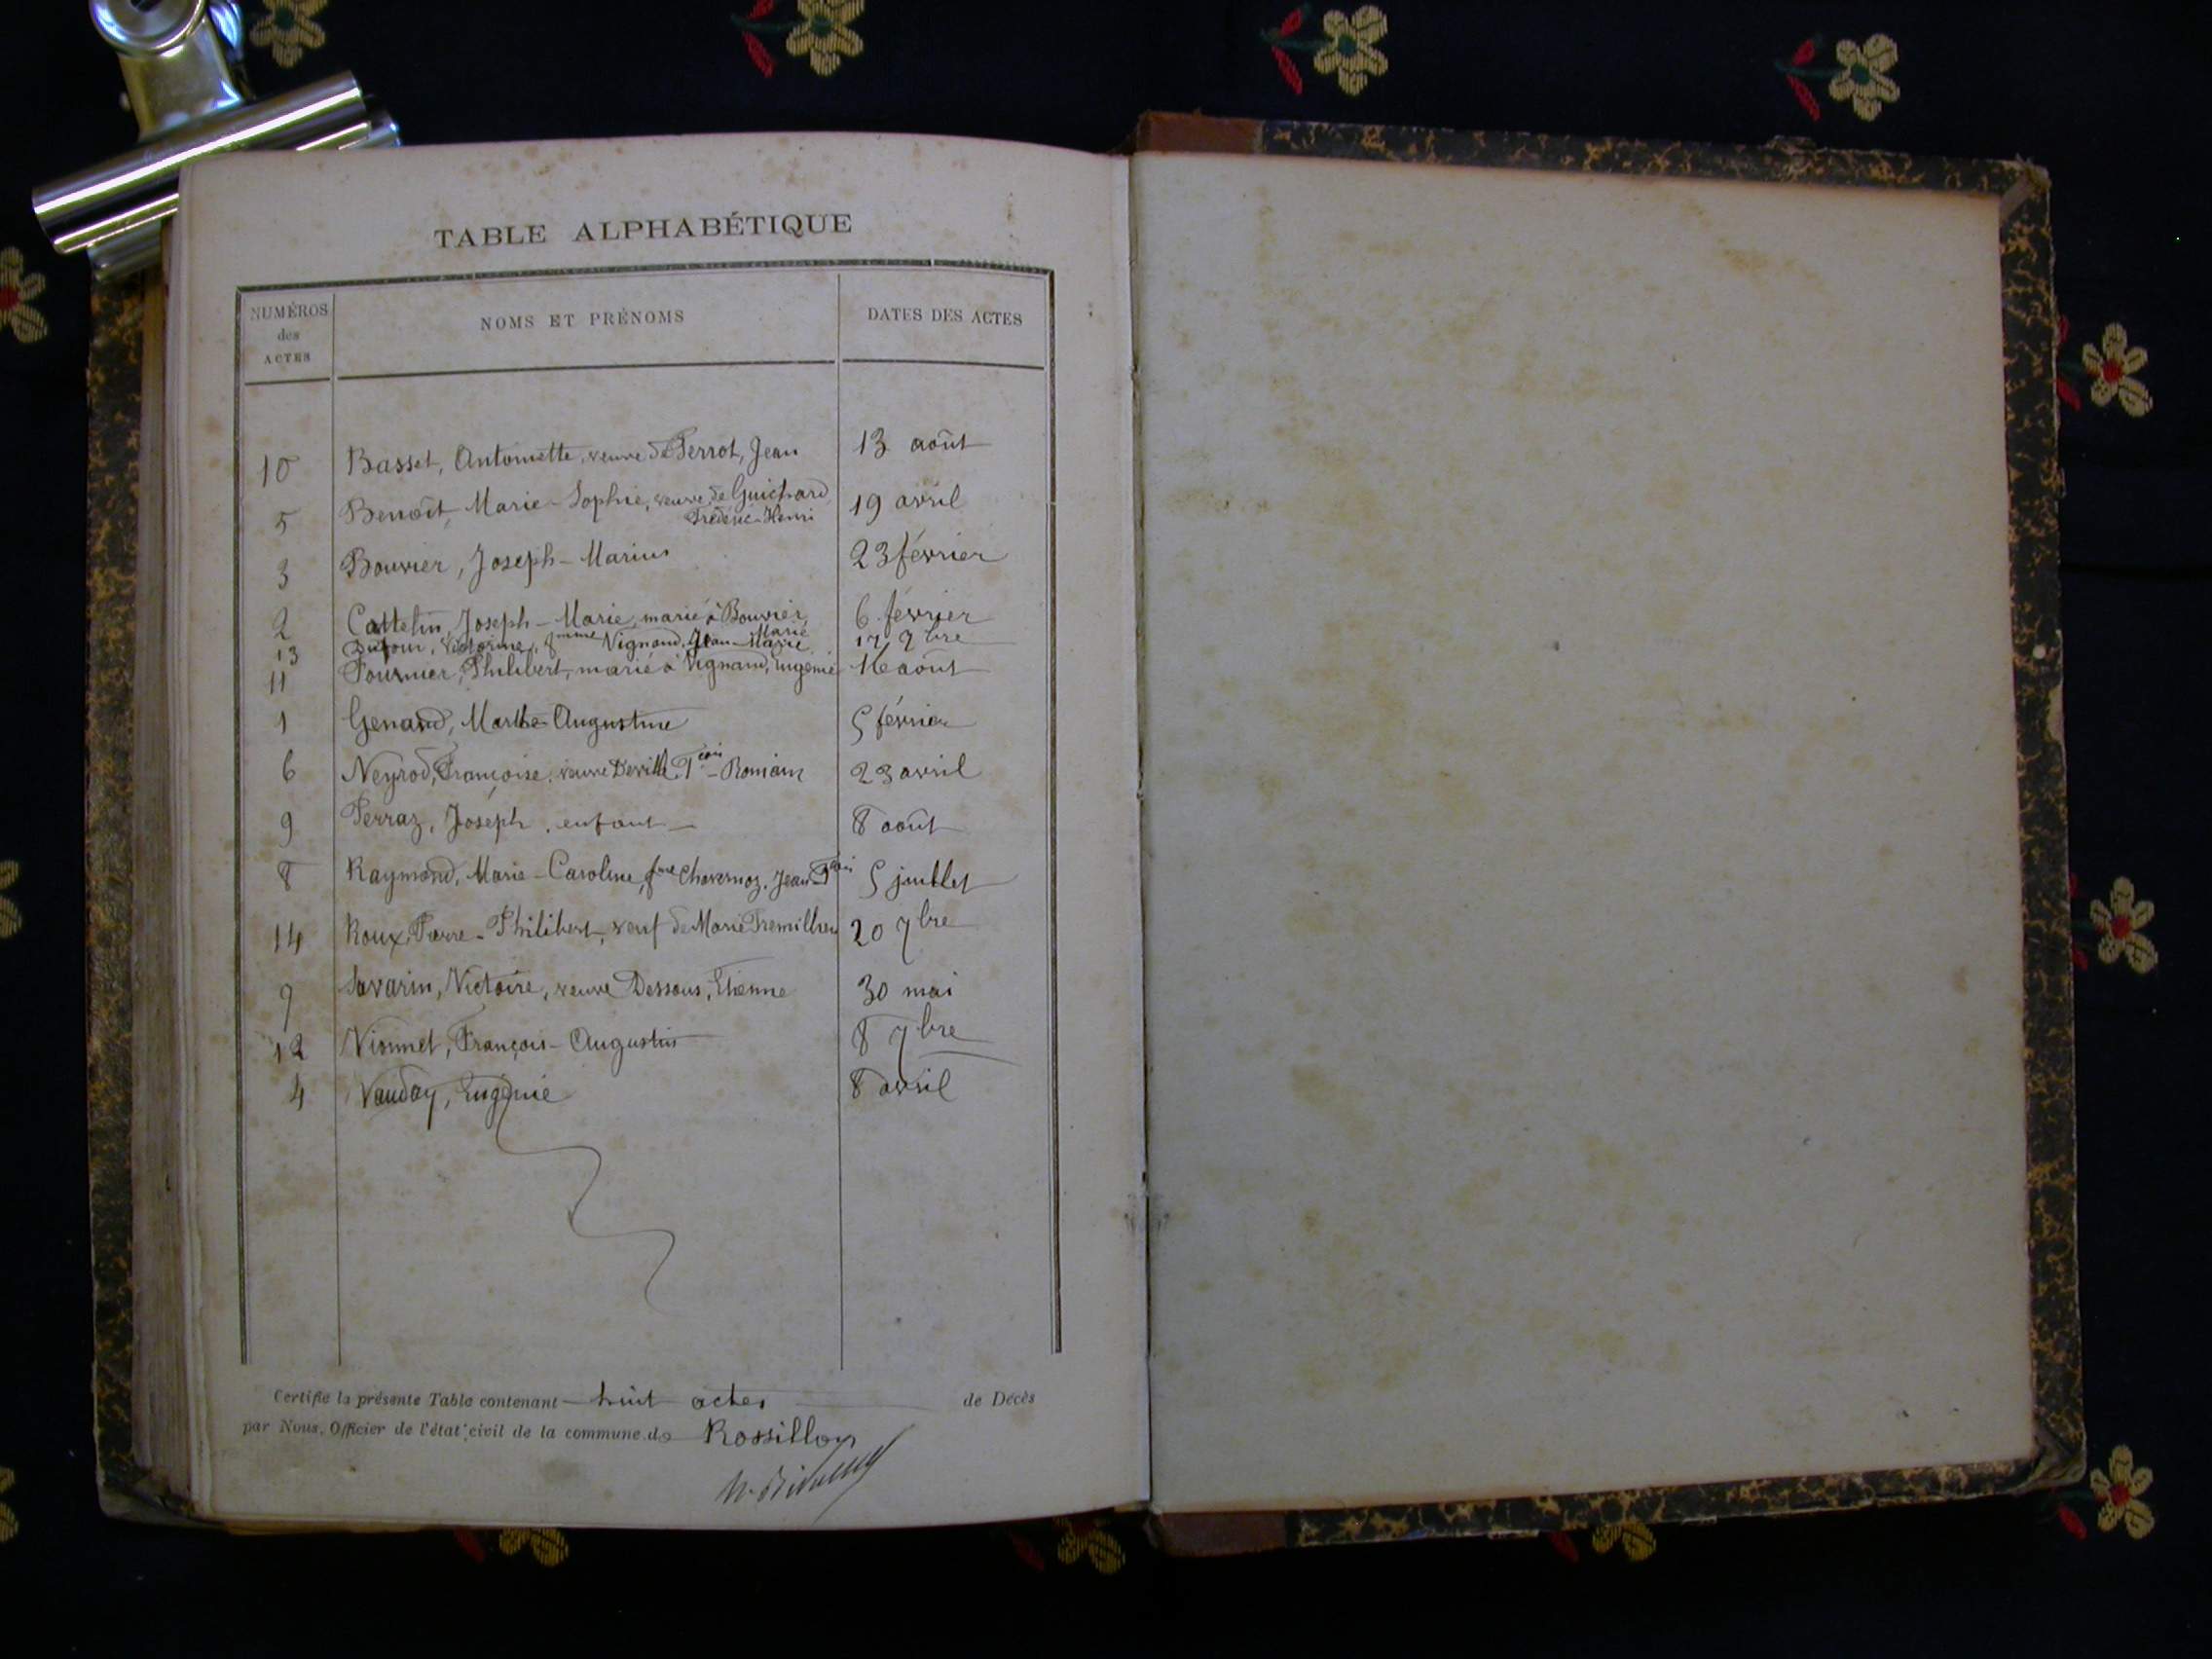 TABLE ALPHABÉTIQUE
NUMÉROS des ACTES NOMS ET PRÉNOMS DATES DES ACTES
10 Basset, Antoinette, veuve de Perrot, Jean 13 août
5 Benoît, Marie-Sophie, veuve de Guichard 19 avril
Fréderic-Henri
3 Bouvier, Joseph-Marius 23 février
2 Cattelin, Joseph-Marie, marié à Bouvier, 6 février
Marie
13 Dufour, Victorine, fmme Vignand, Jean-Marie 17 9bre
11 Fournier, Philibert, marié à Vignand, Eugénie 16 août
1 Genand, Marthe-Augustine 5 février
6 Neyrod, Françoise, veuve Deville, Fçois-Romain 23 avril
9 Perraz, Joseph, enfant 8 août
8 Raymond, Marie-Caroline, fme Chavernoz, Jean-Fçois 5 juillet
14 Roux, Pierre-Philibert, veuf de Marie Tremillieu 20 7bre
7 Savarin, Victoire, veuve Dessous, Etienne 30 mai
12 Vionnet, François-Augustin 8 7bre
4 Vauday, Eugénie 8 avril
Certifie la présente Table contenant huit actes de Décès
par Nous, Officier de l'état civil de la commune de Rossillon